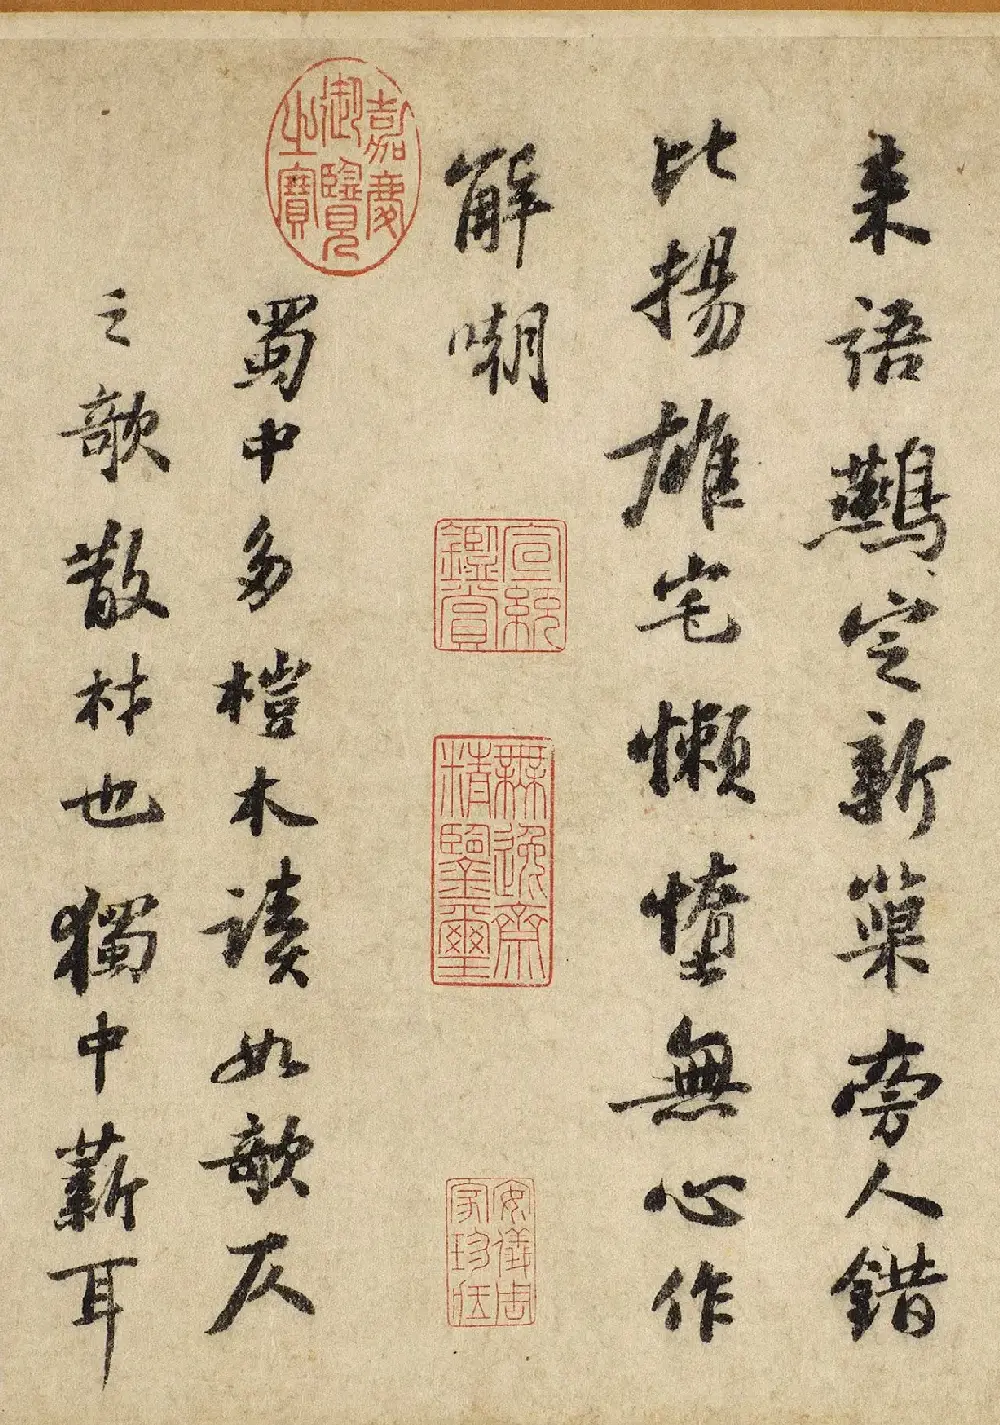 来語鷰定新巢旁人錯
比揚雄宅懶惰無心作
解嘲
宣統鑑賞
無逸齋精鑒璽
安儀周家珍藏
嘉慶御覽之寶
蜀中多榿木讀如欹仄
之欹散材也獨中薪耳